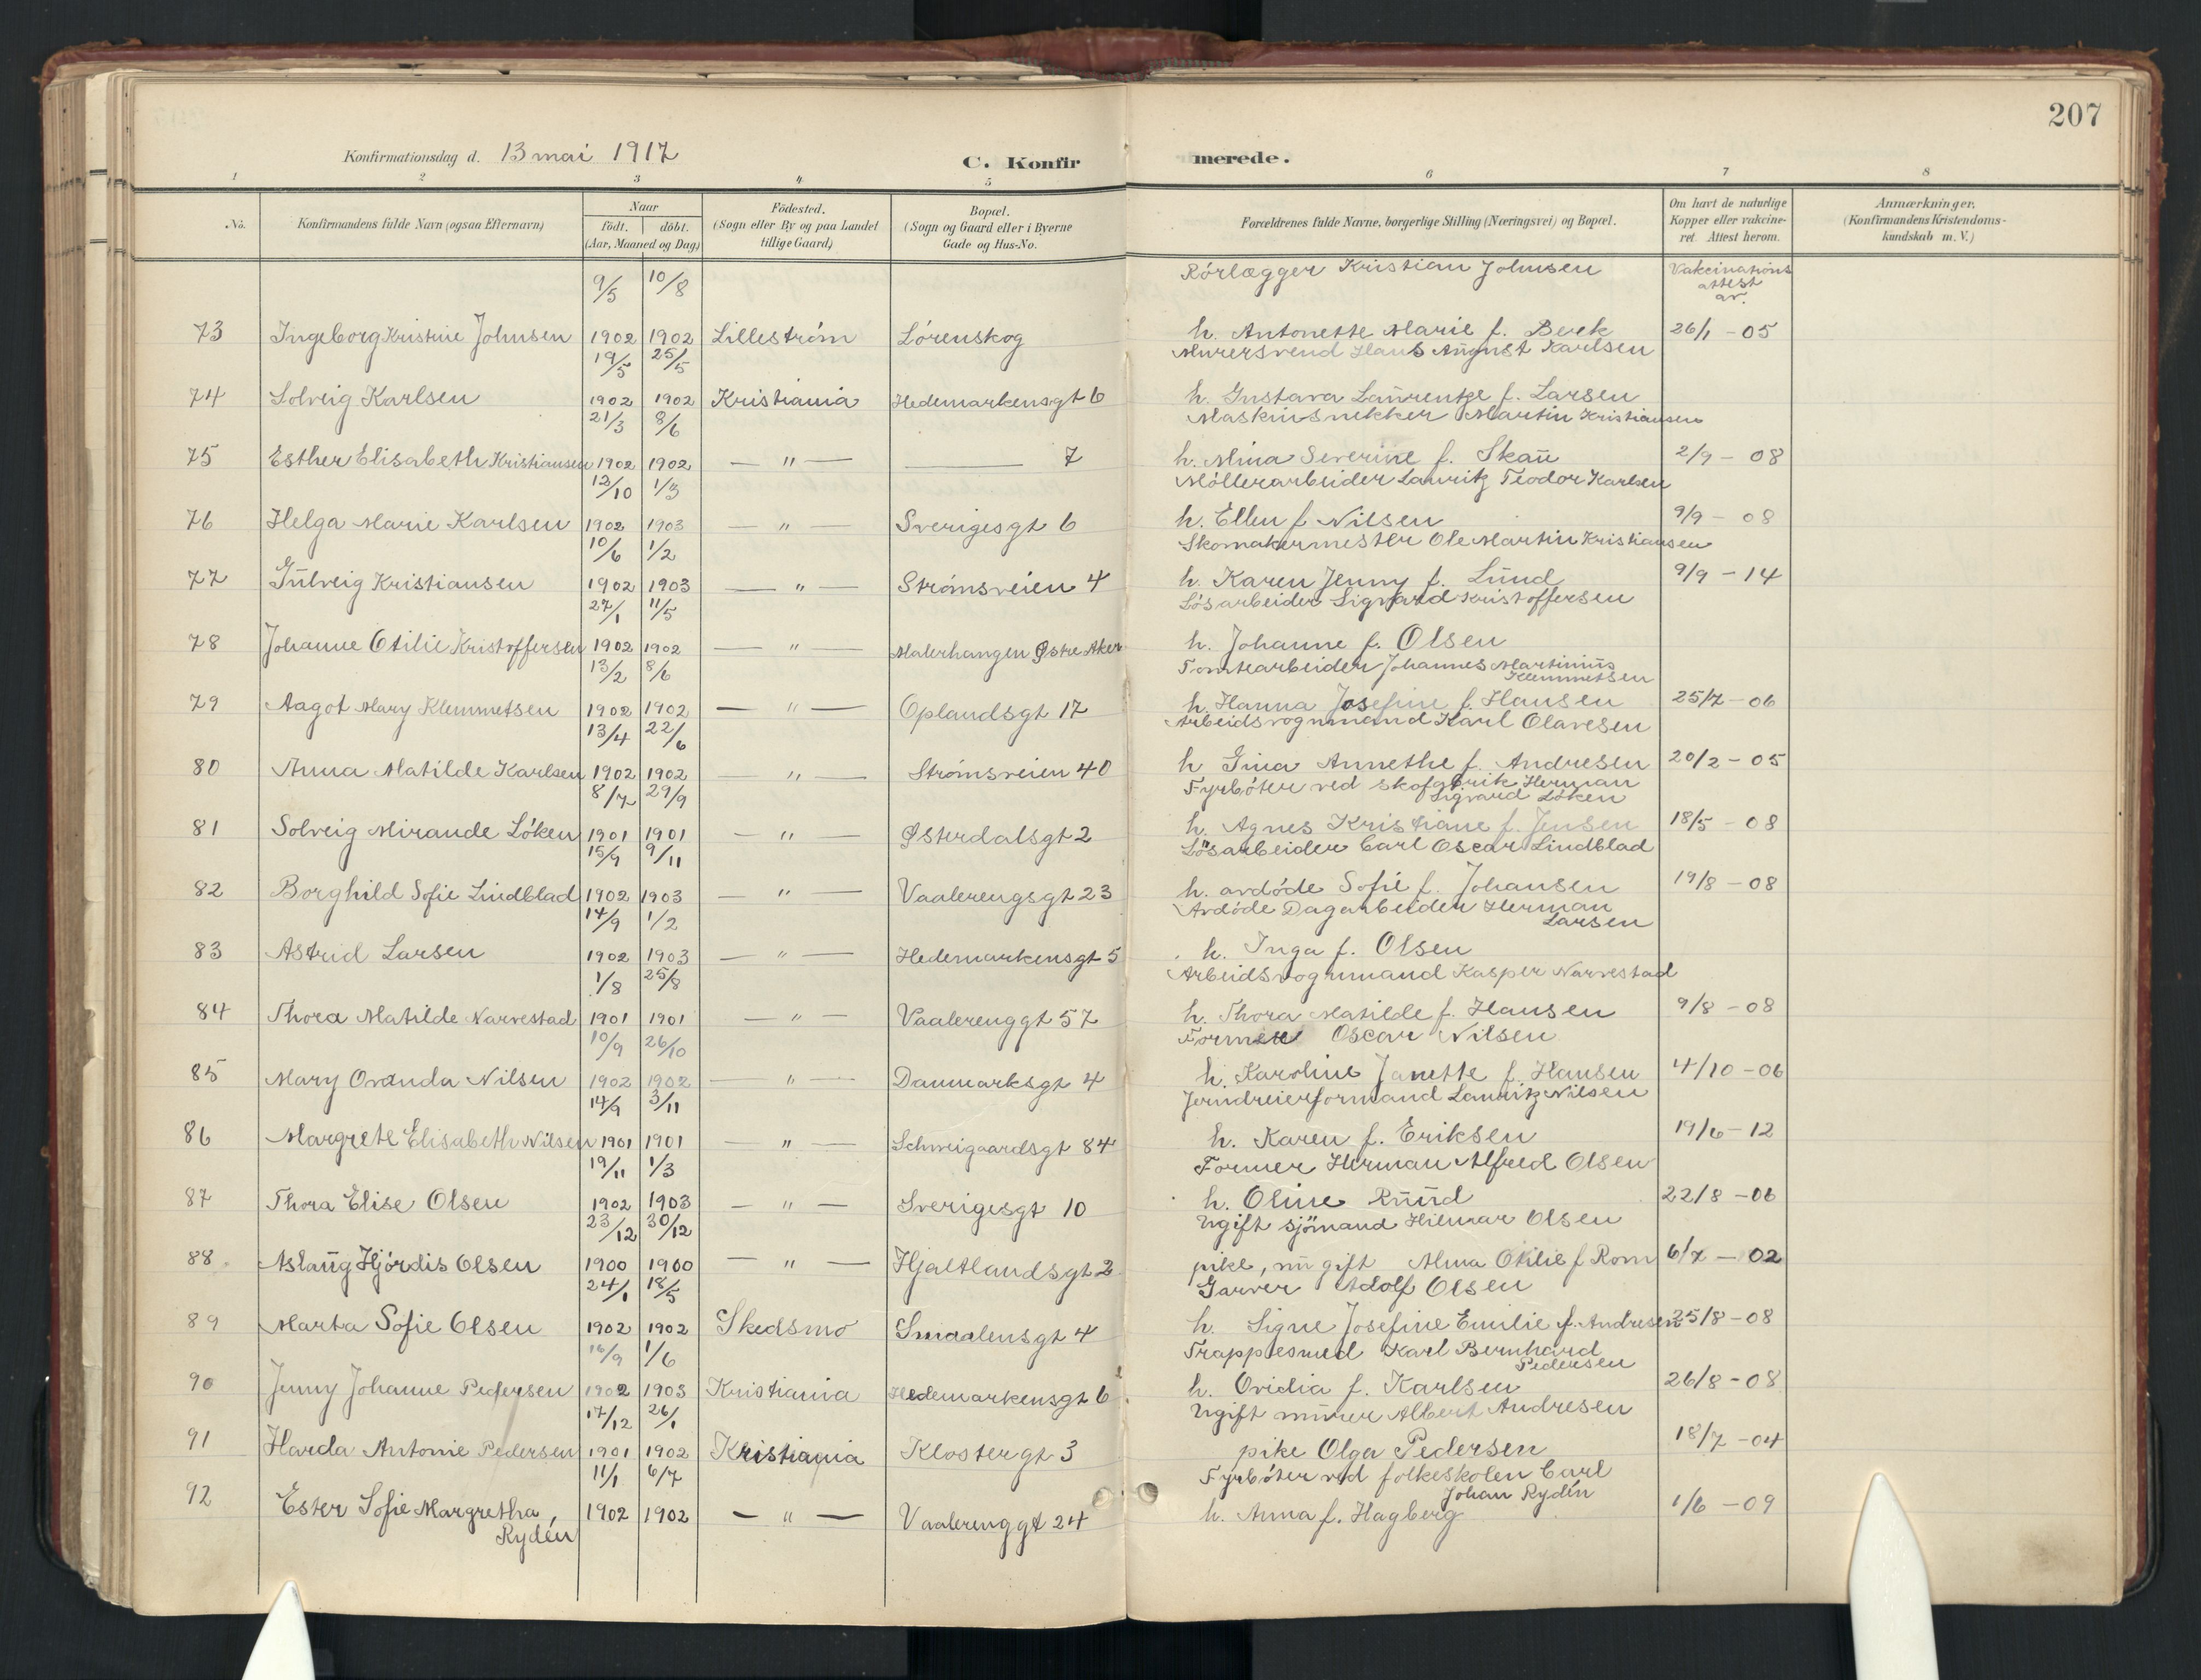 207
Konfirmationsdag d. 13 mai 1917
C. Konfirmerede.
1 2 3 4 5 6 7 8
No. Konfirmandens fulde Navn (ogsaa Efternavn) Naar födt. döbt. (Aar, Maaned og Dag) Födested. (Sogn eller By og paa Landet tillige Gaard) Bopæl. (Sogn og Gaard eller i Byerne Gade og Hus-No. Forældrenes fulde Navne, borgerlige Stilling (Næringsvei) og Bopæl. Om havt de naturlige Kopper eller vakcineret. Attest herom. Anmærkninger. (Konfirmandens Kristendomskundskab m. V.)
9/5 10/8 Rörlægger Kristian Johnsen Vakcinations attest av.
73 Ingeborg Kristine Johnsen 1902 1902 Lilleström Lörenskog h. Antonette Marie f. Berk 26/1 - 05
19/5 25/5 Murersvend Hans August Karlsen
74 Solveig Karlsen 1902 1902 Kristiania Hedemarkensgt 6 h. Gustava Laurentze f. Larsen
21/3 8/6 Maskinsnekker Martin Kristiansen
75 Esther Elisabeth Kristiansen 1902 1902 — " — —— 7 h. Mina Severine f. Skau 2/9 - 08
12/10 1/3 Möllerarbeider Lauritz Teodor Karlsen
76 Helga Marie Karlsen 1902 1903 — " — Sverigesgt 6 h. Ellen f Nilsen 9/9 - 08
10/6 1/2 Skomakermester Ole Martin Kristiansen
77 Gulveig Kristiansen 1902 1903 — " — Strömsveien 4 h. Karen Jenny f. Lund 9/9 - 14
27/1 11/5 Lösarbeider Sigvard Kristoffersen
78 Johanne Otilie Kristoffersen 1902 1902 — " — Malerhaugen Østre Aker h. Johanne f. Olsen
13/2 8/6 Tomtearbeider Johannes Martinius Klemmetsen
79 Aagot Mary Klemmetsen 1902 1902 — " — Oplandsgt 17 h. Hanna Josefine f. Hansen 25/7 - 06
13/4 22/6 Arbeidsvognmand Karl Olavesen
80 Anna Matilde Karlsen 1902 1902 — " — Strömsveien 40 h Gina Annethe f. Andresen 20/2 - 05
8/7 29/9 Fyrböter ved skofabrik Herman Sigvard Löken
81 Solveig Mirande Löken 1901 1901 — " — Østerdalsgt 2 h. Agnes Kristiane f. Jensen 18/5 - 08
15/9 9/11 Lösarbeider Carl Oscar Lindblad
82 Borghild Sofie Lindblad 1902 1903 — " — Vaalerengsgt 23 h. avdöde Sofie f. Johansen 19/8 - 08
14/9 1/2 Avdöde Dagarbeider Herman Larsen
83 Astrid Larsen 1902 1903 — " — Hedemarkensgt 5 h. Inga f. Olsen
1/8 25/8 Arbeidsvognmand Kasper Narvestad
84 Thora Matilde Narvestad 1901 1901 — " — Vaalerenggt 57 h. Thora Matilde f. Hansen 9/8 - 08
10/9 26/10 Former Oscar Nilsen
85 Mary Ovanda Nilsen 1902 1902 — " — Danmarksgt 4 h. Karoline Janette f. Hansen 4/10 - 06
14/9 3/11 Jerndreierformand Lauritz Nilsen
86 Margrete Elisabeth Nilsen 1901 1901 — " — Schweigaardsgt 84 h. Karen f. Eriksen 19/6 - 12
19/11 1/3 Former Herman Alfred Olsen
87 Thora Elise Olsen 1902 1903 — " — Sverigesgt 10 h. Oline Ruud 22/8 - 06
23/12 30/12 Ugift sjömand Hilmar Olsen
88 Aslaug Hjördis Olsen 1900 1900 — " — Hjaltlandsgt 2 pike, nu gift Alma Otilie f Rom 6/7 - 02
24/1 18/5 Garver Adolf Olsen
89 Marta Sofie Olsen 1902 1902 Skedsmo Smaalensgt 4 h. Signe Josefine Emilie f. Andresen 25/8 - 08
16/9 1/6 Trappesmed Karl Bernhard Pedersen
90 Jenny Johanne Pedersen 1902 1903 Kristiania Hedemarkensgt 6 h. Ovidia f. Karlsen 26/8 - 08
17/12 26/1 Ugift murer Albert Andresen
91 Harda Antonie Pedersen 1901 1902 Kristiania Klostergt 3 pike Olga Pedersen 18/7 - 04
11/1 6/7 Fyrböter ved folkeskolen Carl Johan Rydén
92 Ester Sofie Margretha Rydén 1902 1902 — " — Vaalerenggt 24 h. Anna f. Hagberg 1/6 - 09